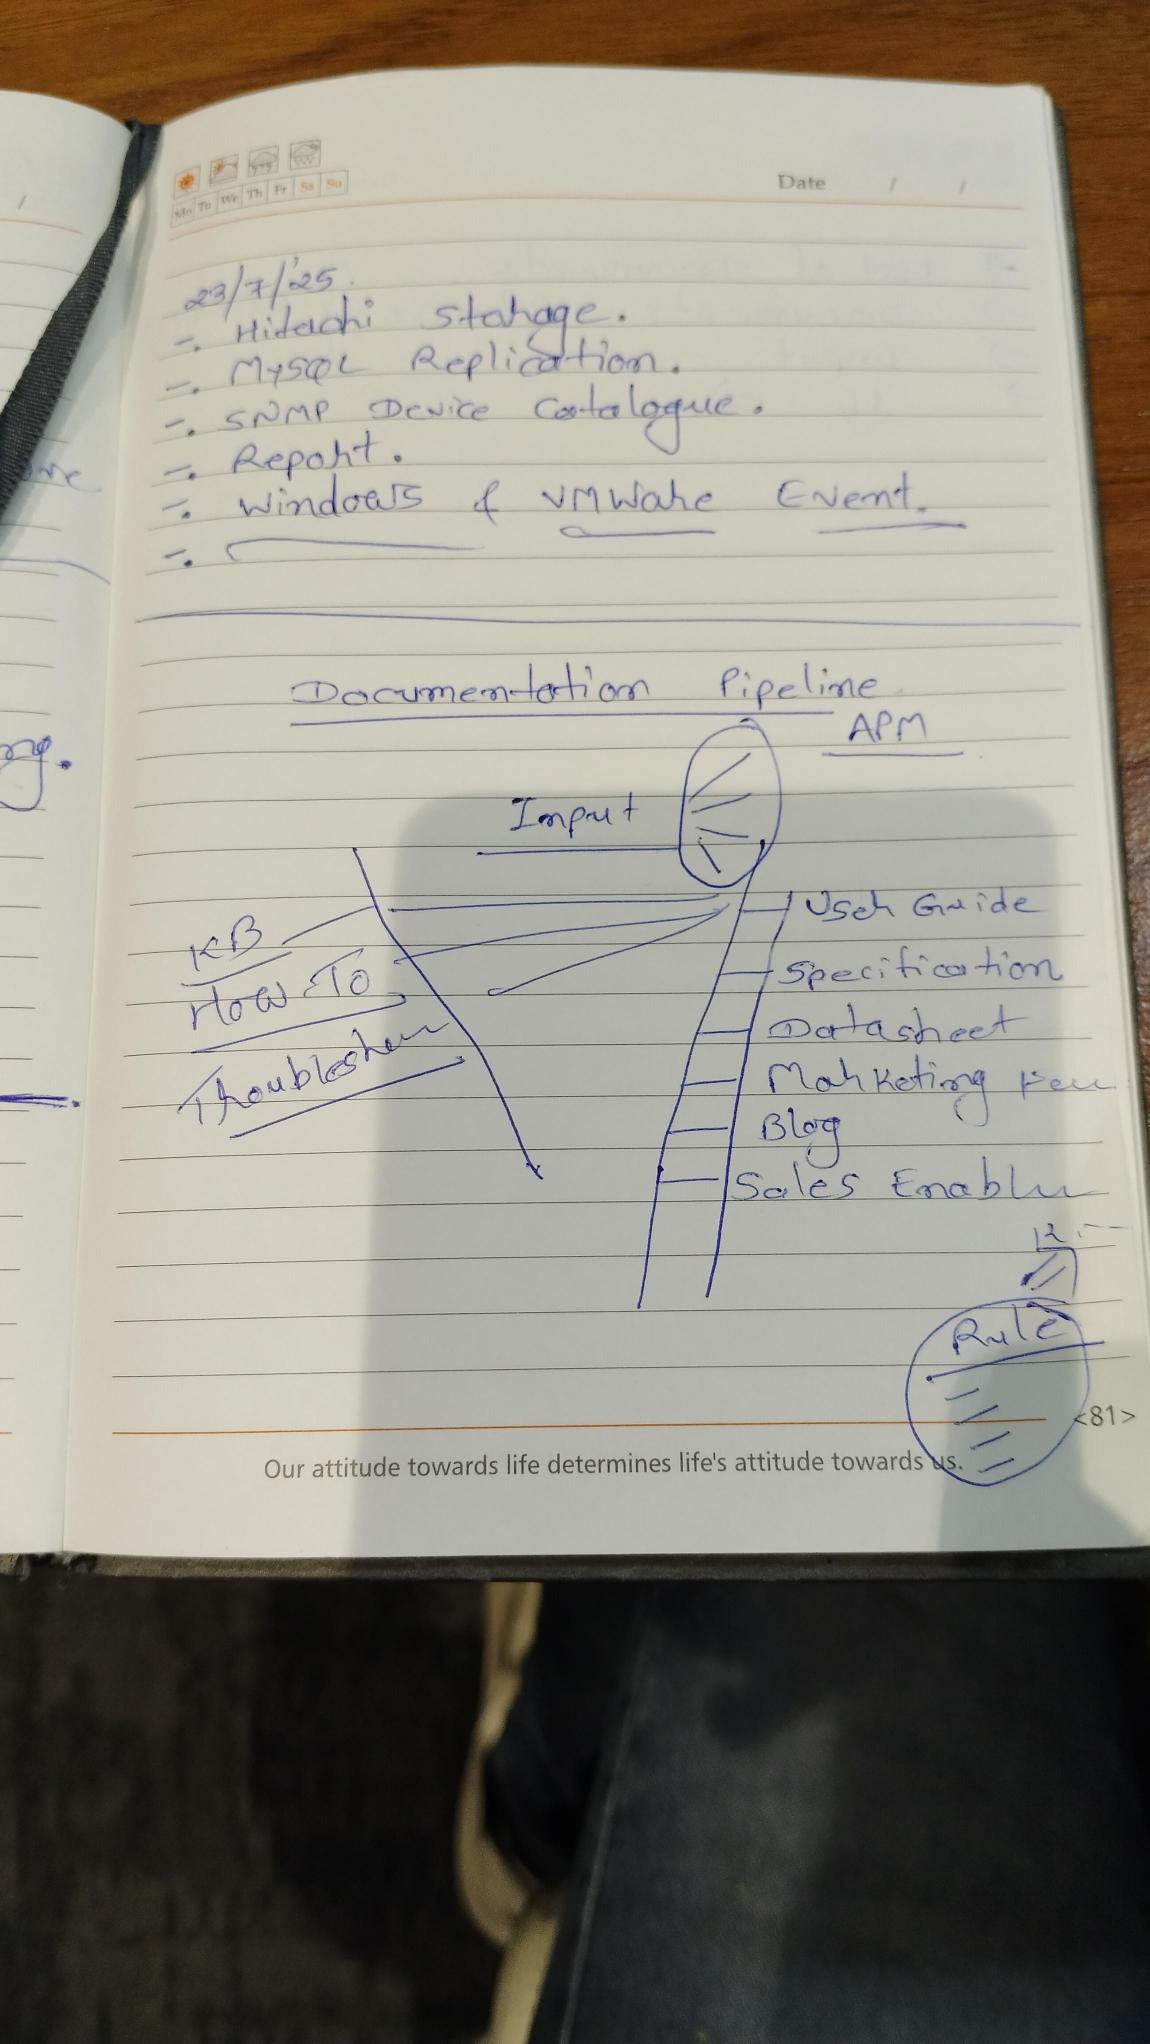 Mo Tu We Th Fr Sa Su
Date / /
23/7/'25.
-. Hitachi Storage.
-. MySQL Replication.
-. SNMP Device Catalogue.
-. Report.
-. Windows & VMWare Event.
-.
Documentation Pipeline
APM
Input
User Guide
KB
Specification
How-To
Datasheet
Marketing
Blog
Sales
Rule
<81>
Our attitude towards life determines life's attitude towards us.